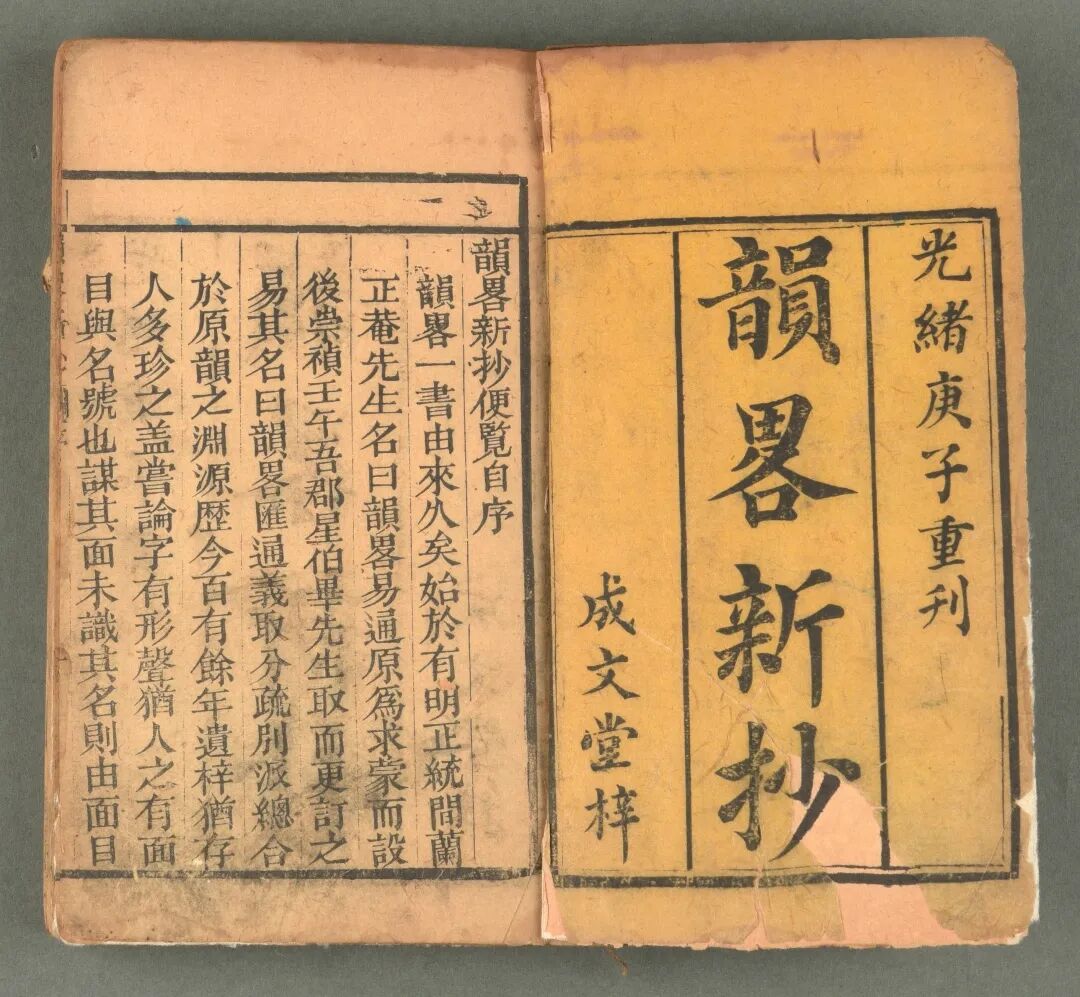 光緒庚子重刊
韻畧新抄
成文堂梓
韻畧新抄便覽自序
韻畧一書由來久矣始於有明正統間蘭
正菴先生名曰韻畧易通原為求蒙而設
後崇禎壬午吾郡星伯畢先生取而更訂之
易其名曰韻畧匯通義取分疏別派總合
於原韻之淵源歷今百有餘年遺梓猶存
人多珍之盖嘗論字有形聲猶人之有面
目與名號也謀其面未識其名則由面目